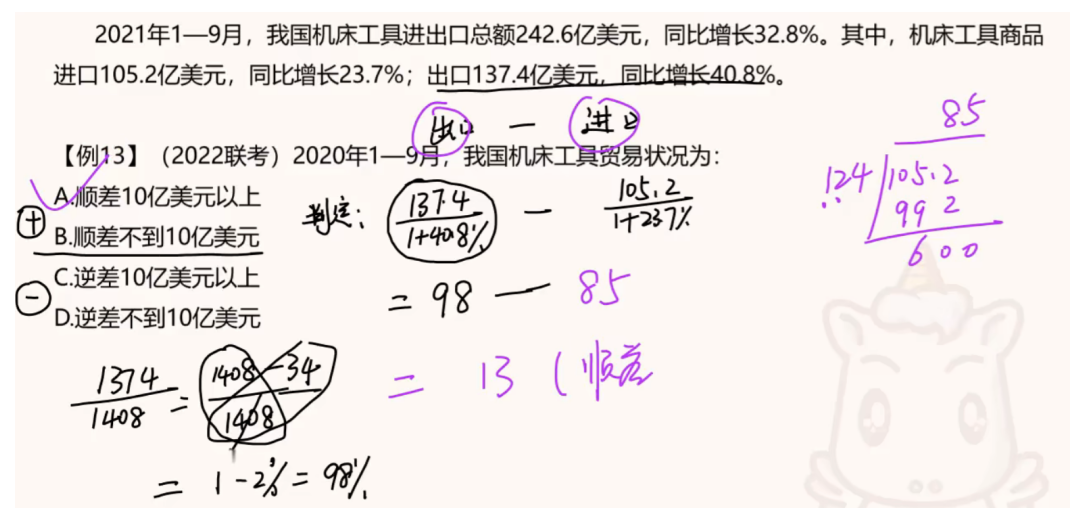 2021年1—9月，我国机床工具进出口总额242.6亿美元，同比增长32.8%。其中，机床工具商品
进口105.2亿美元，同比增长23.7%；出口137.4亿美元，同比增长40.8%。
出口 — 进口
【例13】（2022联考）2020年1—9月，我国机床工具贸易状况为：
A.顺差10亿美元以上
B.顺差不到10亿美元
C.逆差10亿美元以上
D.逆差不到10亿美元
+
−
判定： 137.4/1+40.8% — 105.2/1+23.7%
= 98 — 85
= 13 (顺差
1374/1408 = 1408-34/1408
= 1-2%= 98%
85
124 105.2
99 2
6 0 0